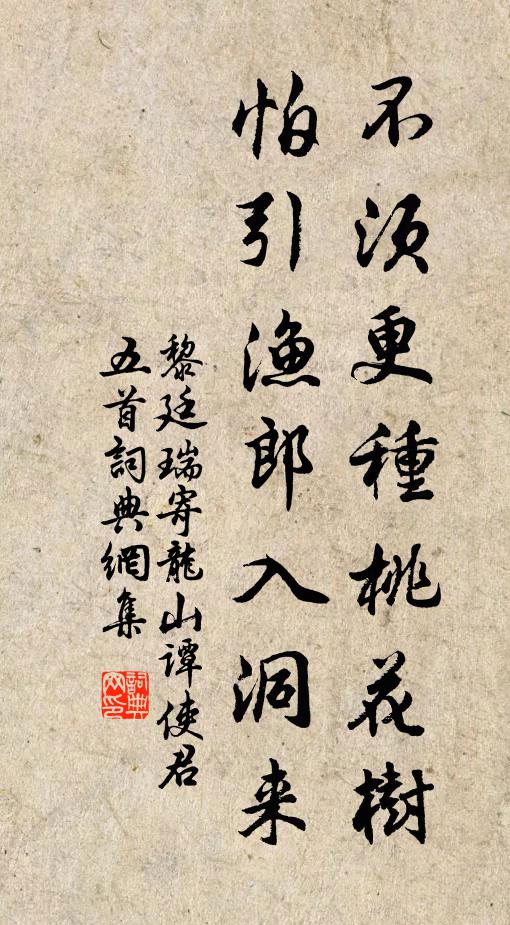 不須更種桃花樹
怕引漁郎入洞来
黎廷瑞寄龍山譚使君
五首詞典網集
詞典
网印